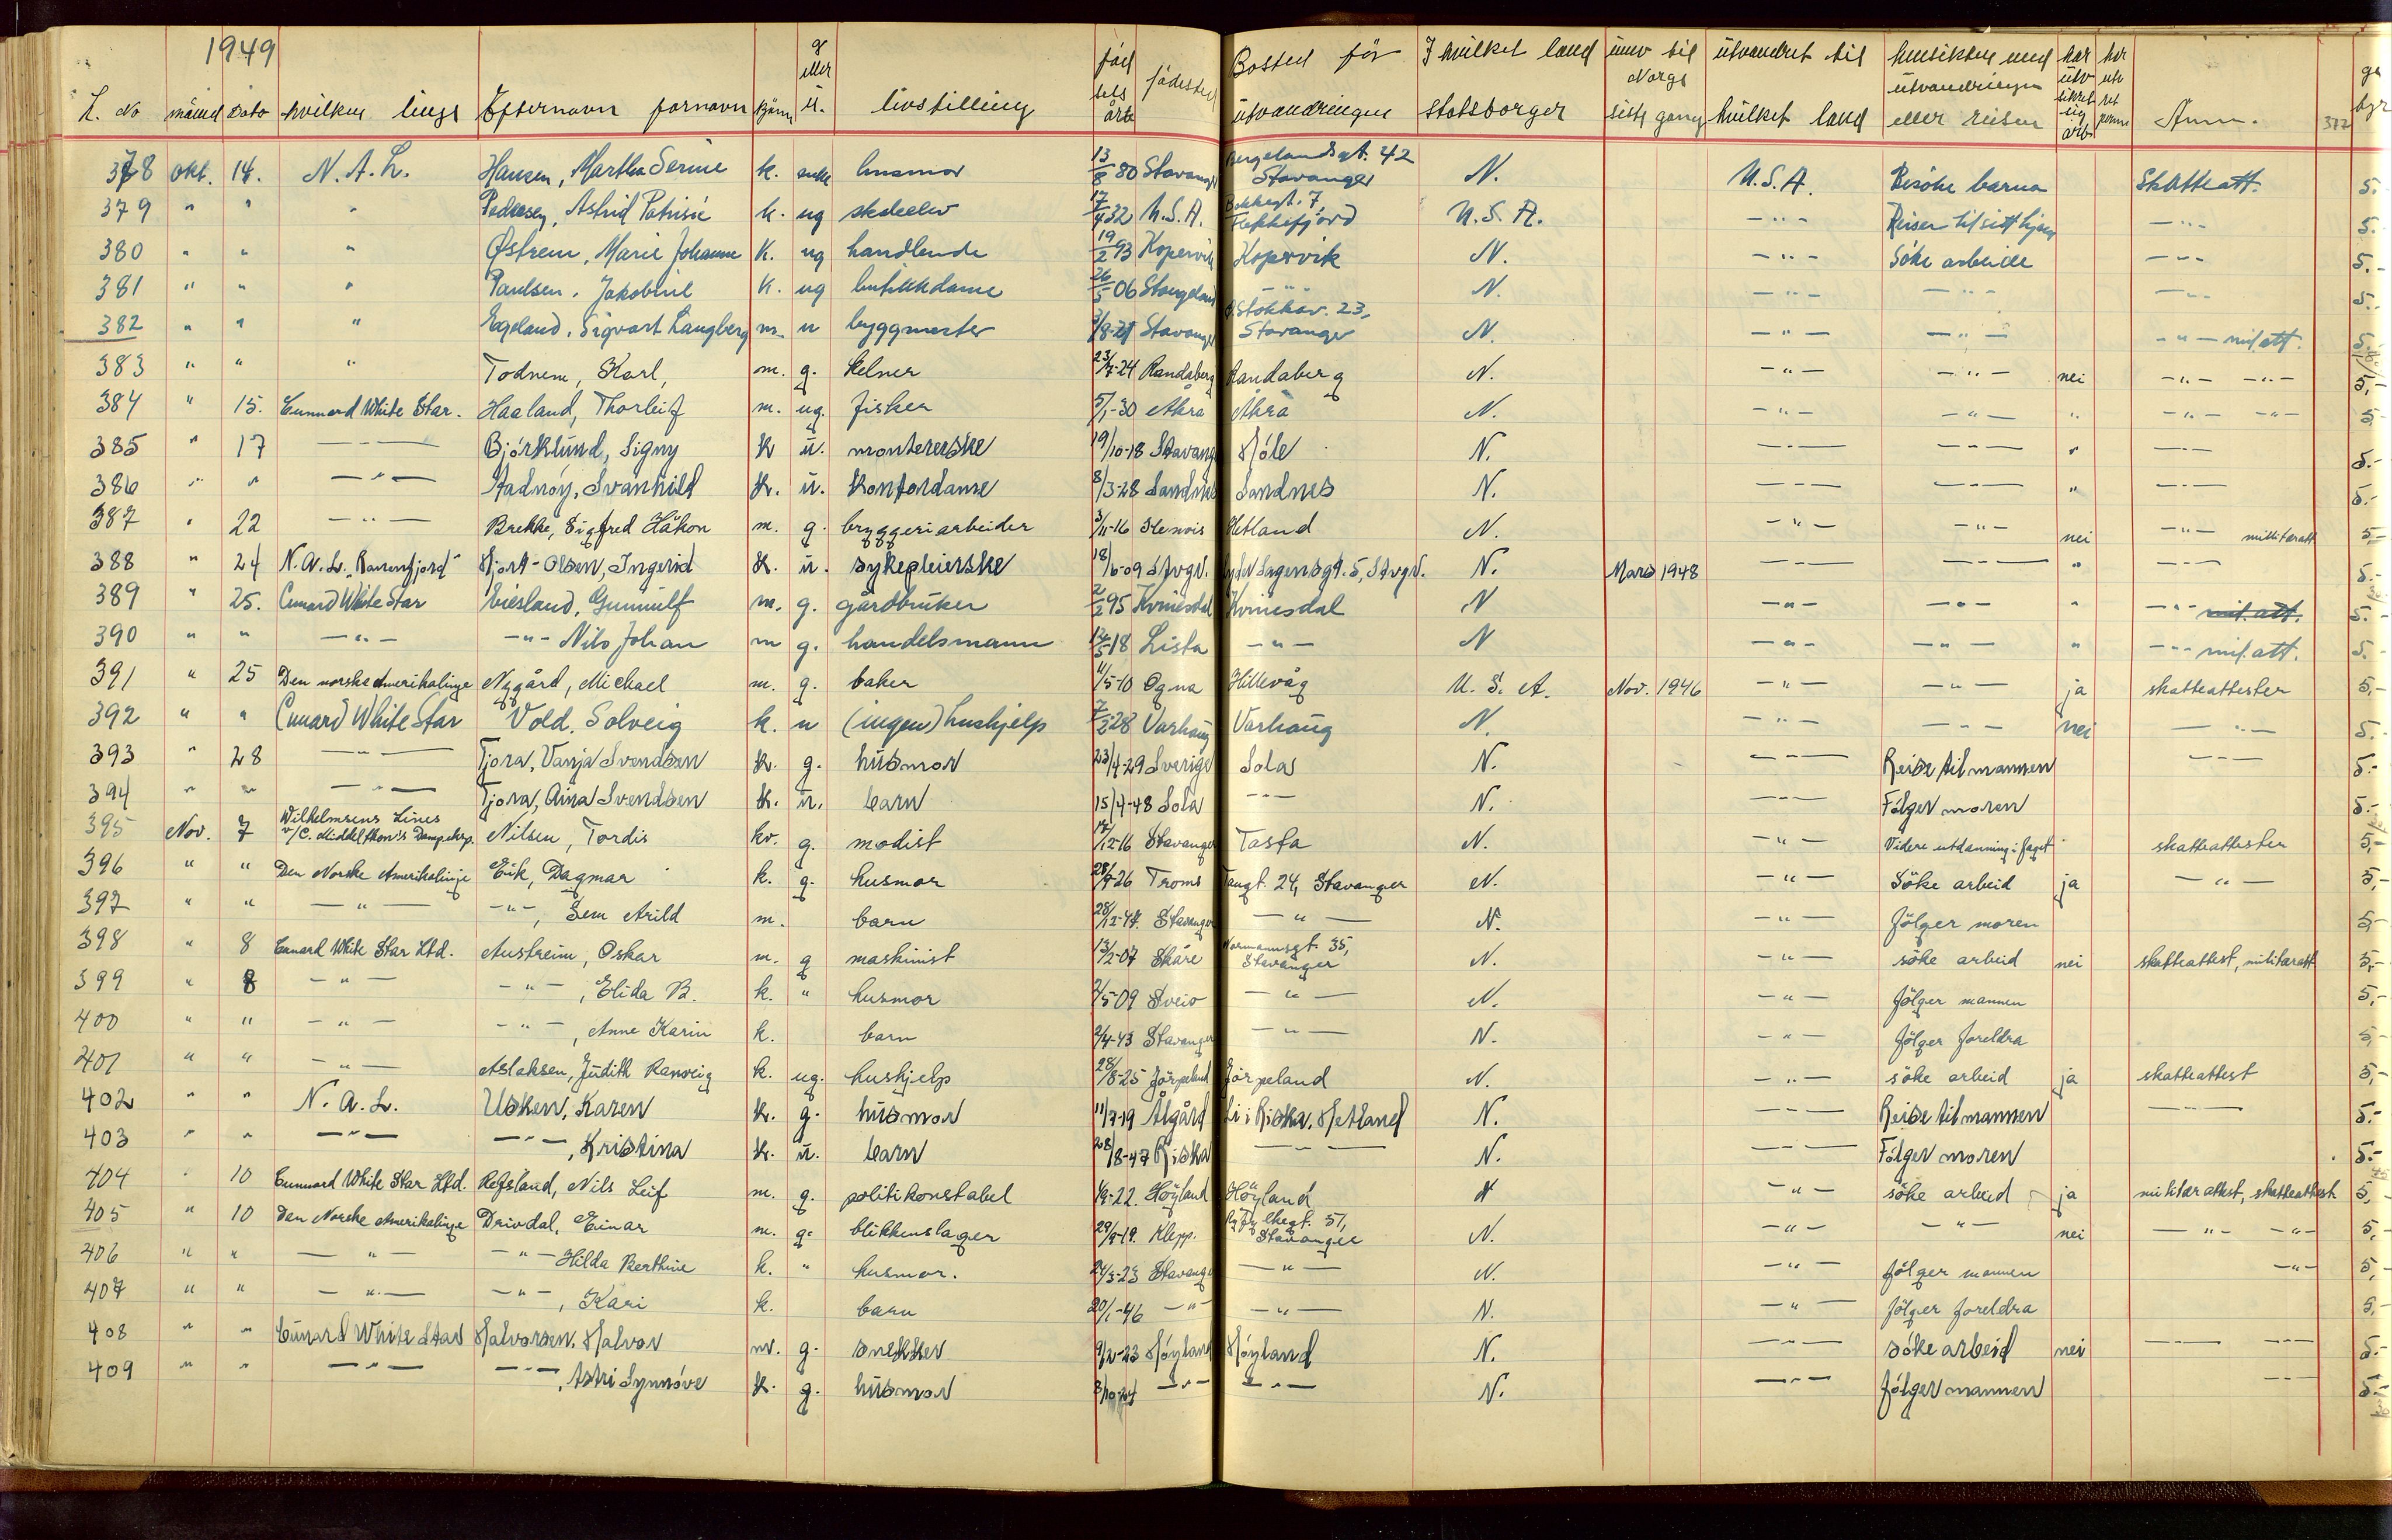 1949
L. No måned Dato hvilken linje Efternavn fornavn kjønn g eller u. livsstilling fødselsår fødested Bosted før utvandringen I hvilket land statsborger innv til Norge siste gang utvandret til hvilket land hensikten med utvandringen eller reisen Anm. 372
378 Okt. 14. N.A.L. Hansen, Martha Serine k. enke husmor 13/8 80 Stavanger Bergelandsgt. 42 Stavanger N. U.S.A. Besøke barna Skatteatt. 5.
379 " " " Pedersen, Astrid Patrisie k. ug skoleelev 17/4 32 U.S.A. Bekkegt. 7, Flekkefjord U.S.A. - " - Reiser til sitt hjem - " - 5.
380 " " " Østrem, Marie Johanne K. ug handlende 19/2 93 Kopervik Kopervik N. - " - Søke arbeide - " - 5.-
381 " " " Paulsen, Jakobine K. ug butikkdame 26/5 06 Stangeland - " - N. - " - - " - - " - 5-
382 " " " Egeland, Sigvart Langberg m. u byggmester 3/8-21 Stavanger Stokkav. 23, Stavanger N. - " - - " - - " - mil att. 5.
383 " " " Todnem, Karl, m. g. kelner 23/7-24 Randaberg Randaberg N. - " - - " - nei - " - - " - 5,-
384 " 15. Cunnard White Star. Haaland, Thorleif m. ug. fisker 5/1-30 Åkra Åkra N. - " - - " - " - " - - " - 5
385 " 17 - " - Bjórklund, Signy K ú. montererske 19/10-18 Stavang Hóle N. - " - - " - " - " - 5.-
386 " " - " - Stadnóy, Svanhild K. ú. Kontordame 8/3-28 Sandnes Sandnes N. - " - - " - " - " - 5.-
387 " 22 - " - Brekke, Sigfred Håkon m. g. bryggeriarbeider 3/11-16 Hetland N. - " - - " - nei - " - militæratt 5,-
388 " 24 N.A.L. Hjort-Olsen, Ingerid K. ú. sykepleierske 18/6-09 Stvgr. Lyder Sagensgt. 5, Stvgr. N. Mars 1948 - " - - " - " - " - 5.-
389 " 25. Cunard White Star Eiesland, Gunnulf m. g. gårdbruker 2/2 95 Kvinesdal Kvinesdal N - " - - " - " - " - mil. att. 5.-
390 " " - " - - " - Nils Johan m g. handelsmann 12/5 18 Lista - " - N - " - - " - " - " - mil. att. 5.
391 " 25 Den norske Amerikalinje Nygård, Michael m. g. baker 11/5-10 Ogna Hillevåg U.S.A. Nov. 1946 - " - - " - ja skatteattester 5,-
392 " " Cunard White Star Vold, Solveig k. u (ingen) hushjelp 7/2 28 Varhaug Varhaug N. - " - - " - nei - " - 5.
393 " 28 - " - Tjora, Vanja Svendsen K. g. húsmor 23/4-29 Sverige Sola N. - " - Reise til mannen - " - 5.-
394 " " - " - Tjora, Aina Svendsen K. ú. barn 15/4-48 Sola - " - N. - " - Fólger moren 5.-
395 Nov. 7 Wilhelmsens Lines v/C. Middelthon's Dampskp. Nilsen, Tordis kv. g. modist 17/12-16 Stavanger Tasta N. - " - Videre utdanning i faget skatteattester 5,-
396 " " Den Norske Amerikalinje Eik, Dagmar k. g. husmor 28/9-26 Troms Tangt. 24, Stavanger N. - " - Søke arbeid ja - " - 5,-
397 " " - " - - " -, Arild m. barn 28/12-47. Stavanger - " - N. - " - følger moren 5-
398 " 8 Cunard White Star Ltd. Austreim, Oskar m. g maskinist 13/2-07 Skåre Normannsgt. 35, Stavanger N. - " - søke arbeid nei skatteattest, militæratt 5,-
399 " 8 - " - - " -, Elida B. k. " husmor 2/5-09 Sveio - " - N. - " - følger mannen 5,-
400 " " - " - - " -, Anne Karin k. barn 2/4-43 Stavanger - " - N. - " - følger foreldra 5,-
401 " " - " - Aslaksen, Judith Ranveig k. ug. hushjelp 28/8-25 Jørpeland Jørpeland N. - " - søke arbeid ja skatteattest 5,-
402 " " N.A.L. Usken, Karen K. g. húsmor 11/7-19 Ålgård Li i Riska, Hetland N. - " - Reise til mannen - " - 5.-
403 " " - " - - " -, Kristina K. ú. barn 28/8-47 Riska - " - N. - " - Fólger moren 5.-
404 " 10 Cunnard White Star Ltd. Refsland, Nils Leif m. g. politikonstabel 1/9-22. Høyland Høyland N - " - søke arbeid ja militærattest, skatteattest 5,
405 " 10 Den Norske Amerikalinje Drivdal, Einar m. g. blikkenslager 29/9-19. Klepp. 51, Stavanger N. - " - - " - nei - " - - " - 5,-
406 " " - " - - " - Hilda Berthine k. " husmor. 24/3-23 Stavanger - " - N. - " - følger mannen - " - 5,-
407 " " - " - - " -, Kari k. barn 20/1-46 - " - - " - N. - " - følger foreldra 5,-
408 " " Cunard White Star Halvorsen, Halvor m. g. snekker 9/2-23 Hóyland Hóyland N. - " - sóke arbeid nei - " - - " - 5.-
409 " " - " - - " -, Astri Synnóve K. g. húsmor 8/10-24 - " - - " - N. - " - fólger mannen - " - 5.-